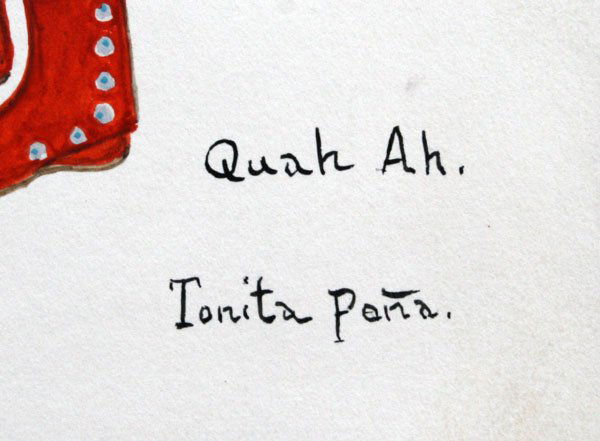 Quah Ah.
Tonita Peña.